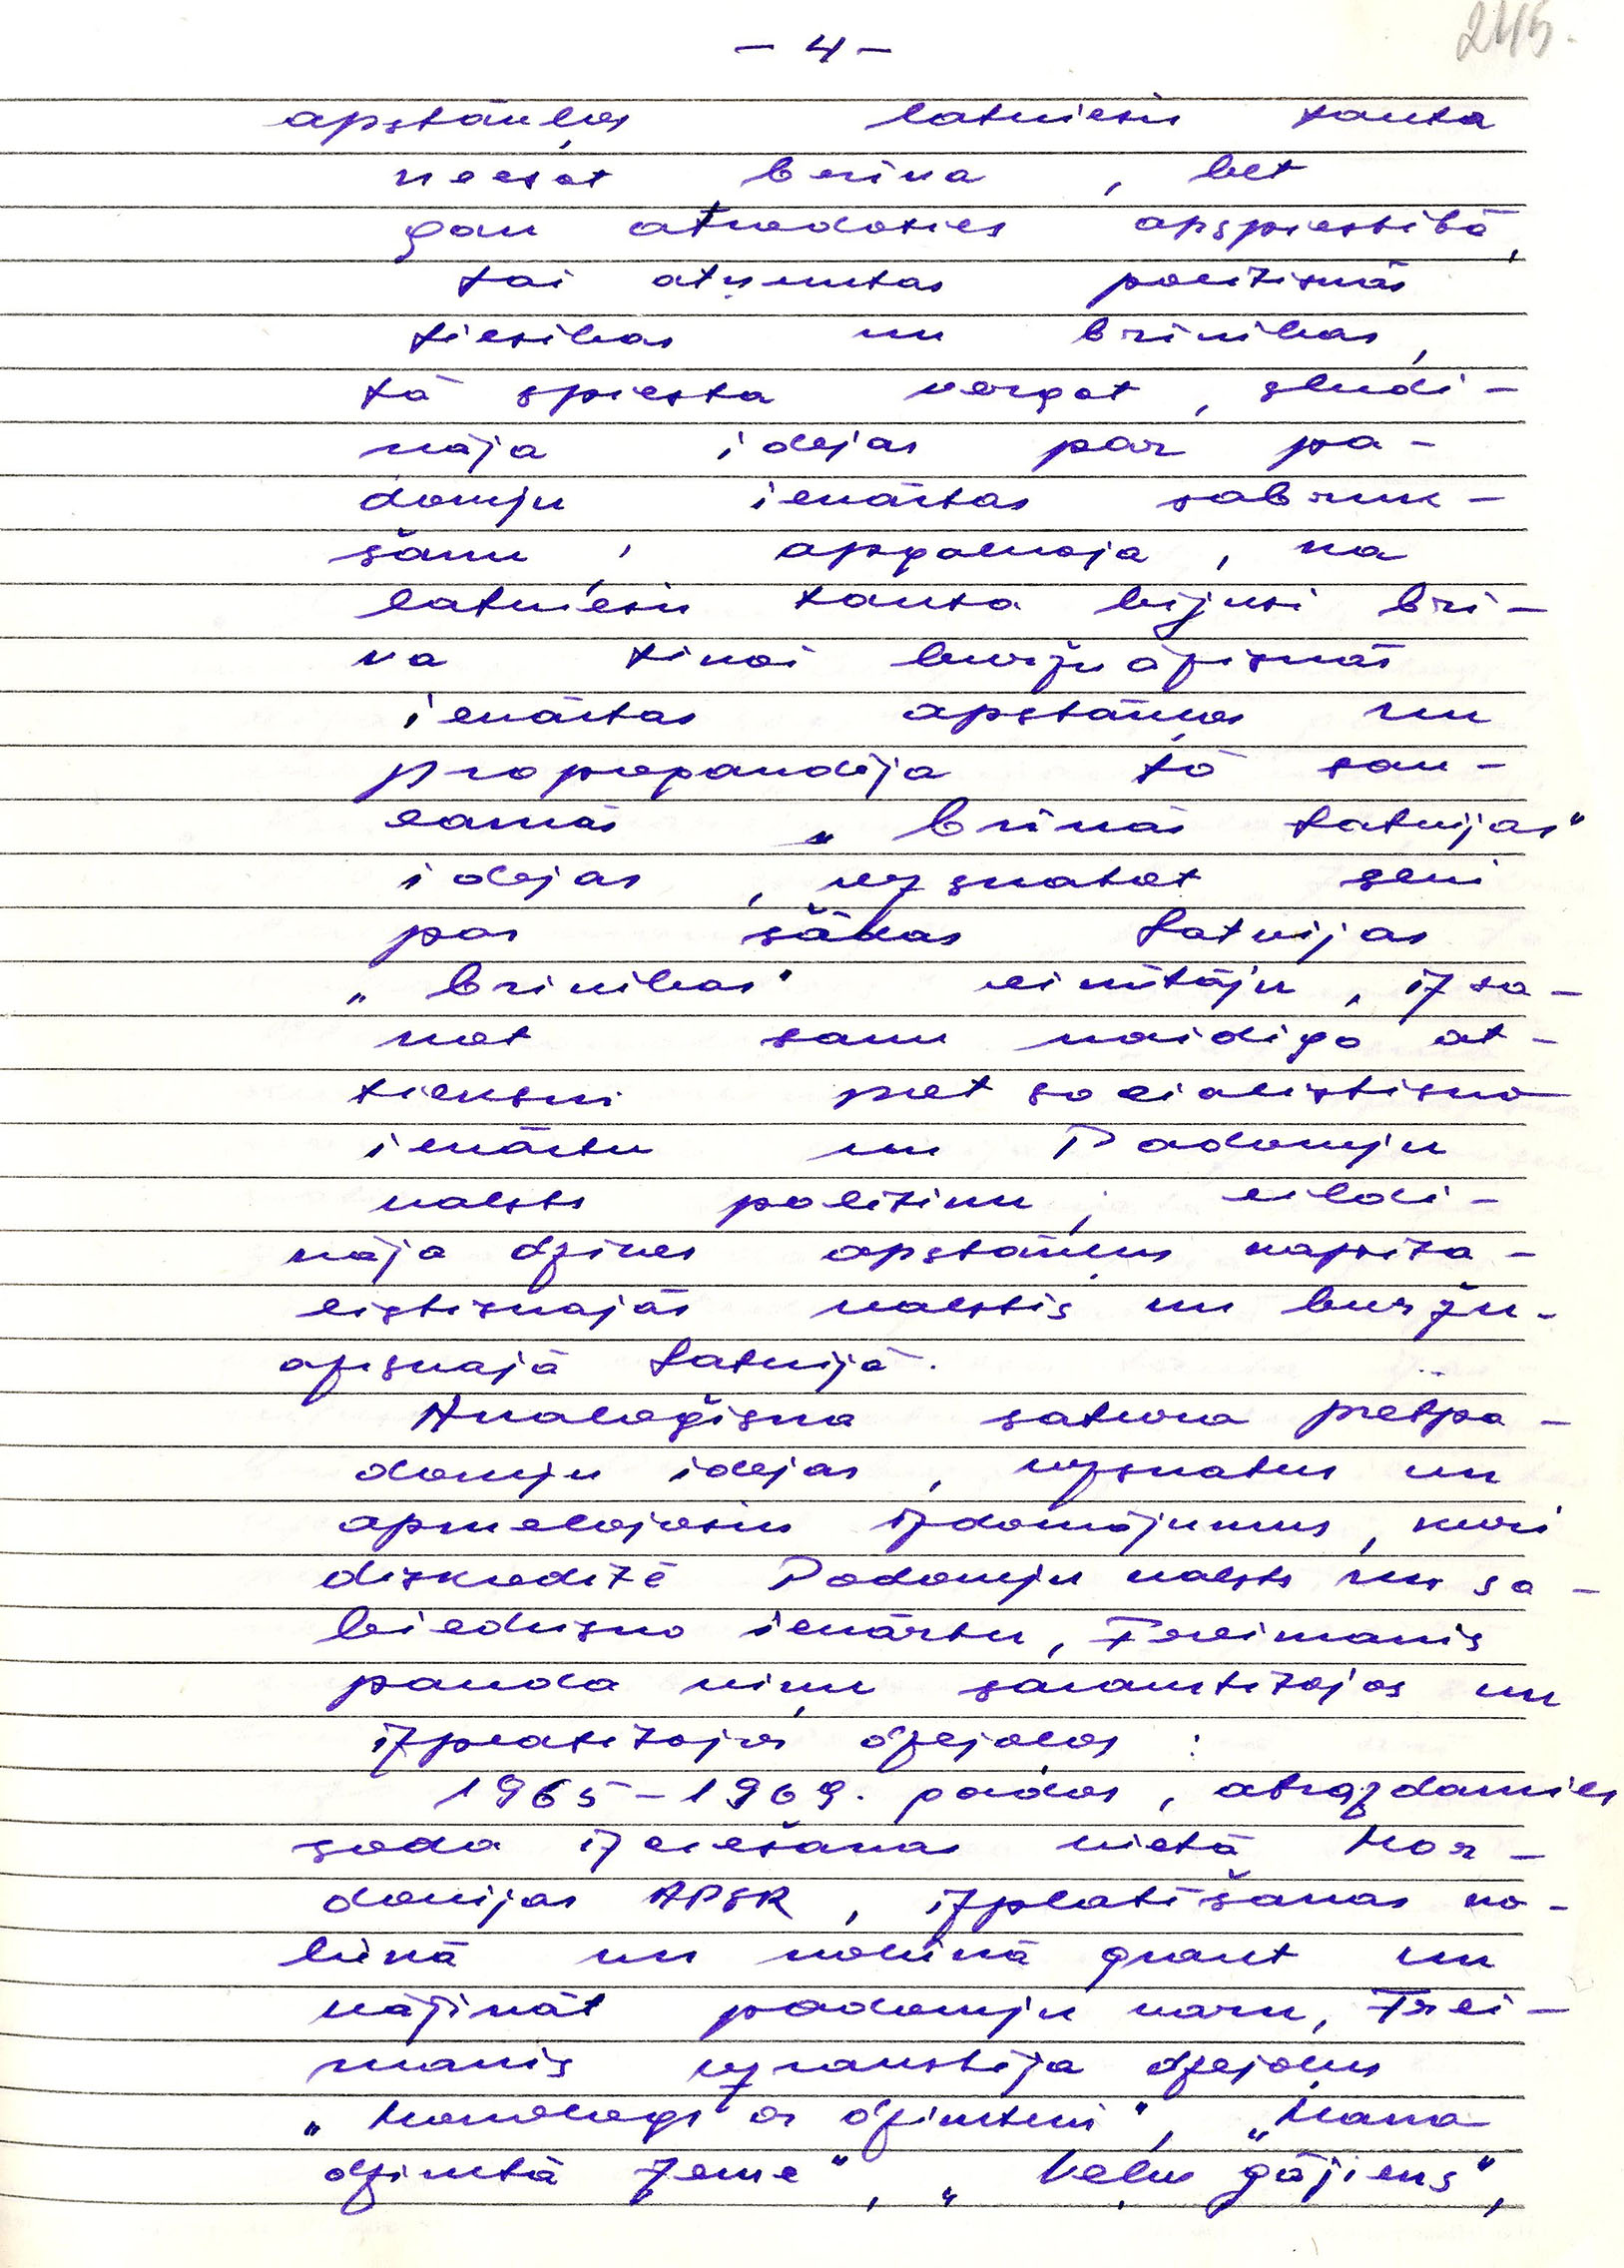 - 4 -
245.
apstākļos latviešu tauta
neesot brīva, bet
gan atrodoties apspiestībā,
tai atņemtas politiskās
tiesības un brīvības,
tā spiesta vergot, sludi-
nāja idejas par pa-
domju iekārtas sabruk-
šanu, apgalvoja, ka
latviešu tauta bijusi brī-
va tikai buržuāziskās
iekārtas apstākļos un
propagandēja tā sau-
camās „Brīvās Latvijas"
idejas, uzskatot sevi
par šādas Latvijas
„brīvības" cīnītāju, izsa-
kot savu naidīgo at-
tieksmi pret socialistisko
iekārtu un Padomju
valsts politiku, cildi-
nāja dzīves apstākļus kapita-
listiskajās valstīs un buržu-
aziskajā Latvijā.
Analoģiska satura pretpa-
domju idejas, uzskatus un
apmelojošus izdomājumus, kuri
diskreditē Padomju valsts un sa-
biedrisko iekārtu, Freimanis
pauda viņu sarakstītajos un
izplatītajos dzejoļos:
1965-1969. gados, atrazdamies
soda izciešanas vietā Mor-
dovijas APSR, izplatīšanas no-
lūkā un nolūkā graut un
vājināt padomju varu, Frei-
manis uzrakstīja dzejoļus
„Monologs ar dzimteni", „Mana
dzimtā zeme", „Veļu gājiens",